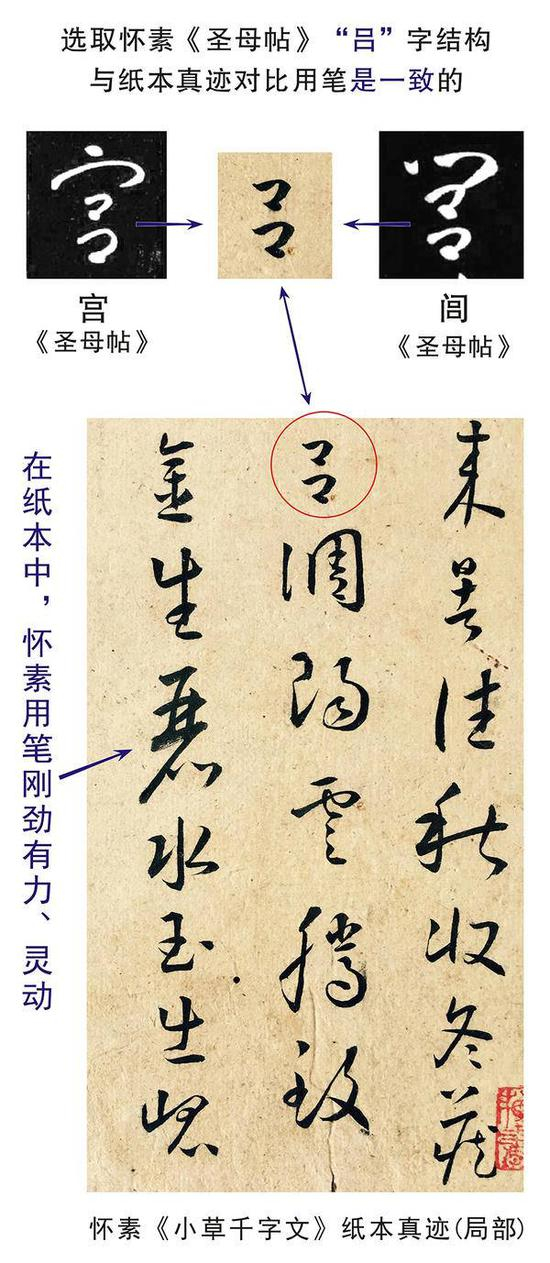 选取怀素《圣母帖》“吕”字结构
与纸本真迹对比用笔是一致的
宫
吕
閭
宫
《圣母帖》
闾
《圣母帖》
在纸本中，怀素用笔刚劲有力、灵动
来暑往秋收冬藏
吕调阳云腾致
金生丽水玉出崑
怀素《小草千字文》纸本真迹(局部)